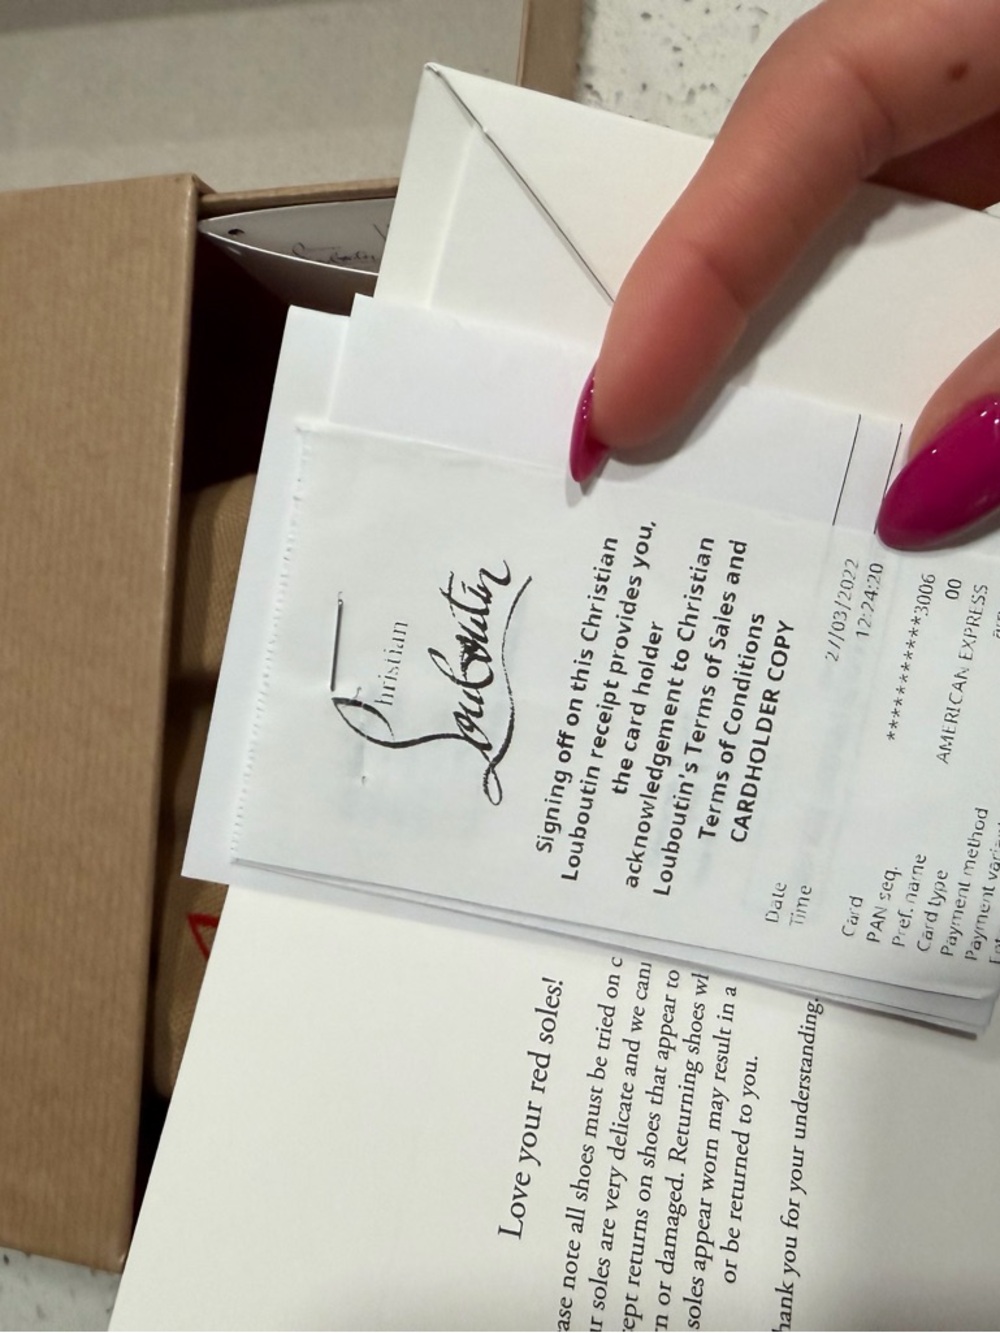 Christian
Louboutin
Signing off on this Christian
Louboutin receipt provides you,
the card holder
acknowledgement to Christian
Louboutin's Terms of Sales and
Terms of Conditions
CARDHOLDER COPY
Date 27/03/2022
Time 12:24:20
Card ************3006
PAN seq. 00
Pref. name AMERICAN EXPRESS
Card type
Payment method
Payment
Love your red soles!
ase note all shoes must be tried on c
ur soles are very delicate and we can
ept returns on shoes that appear to
n or damaged. Returning shoes wh
soles appear worn may result in a
or be returned to you.
hank you for your understanding.